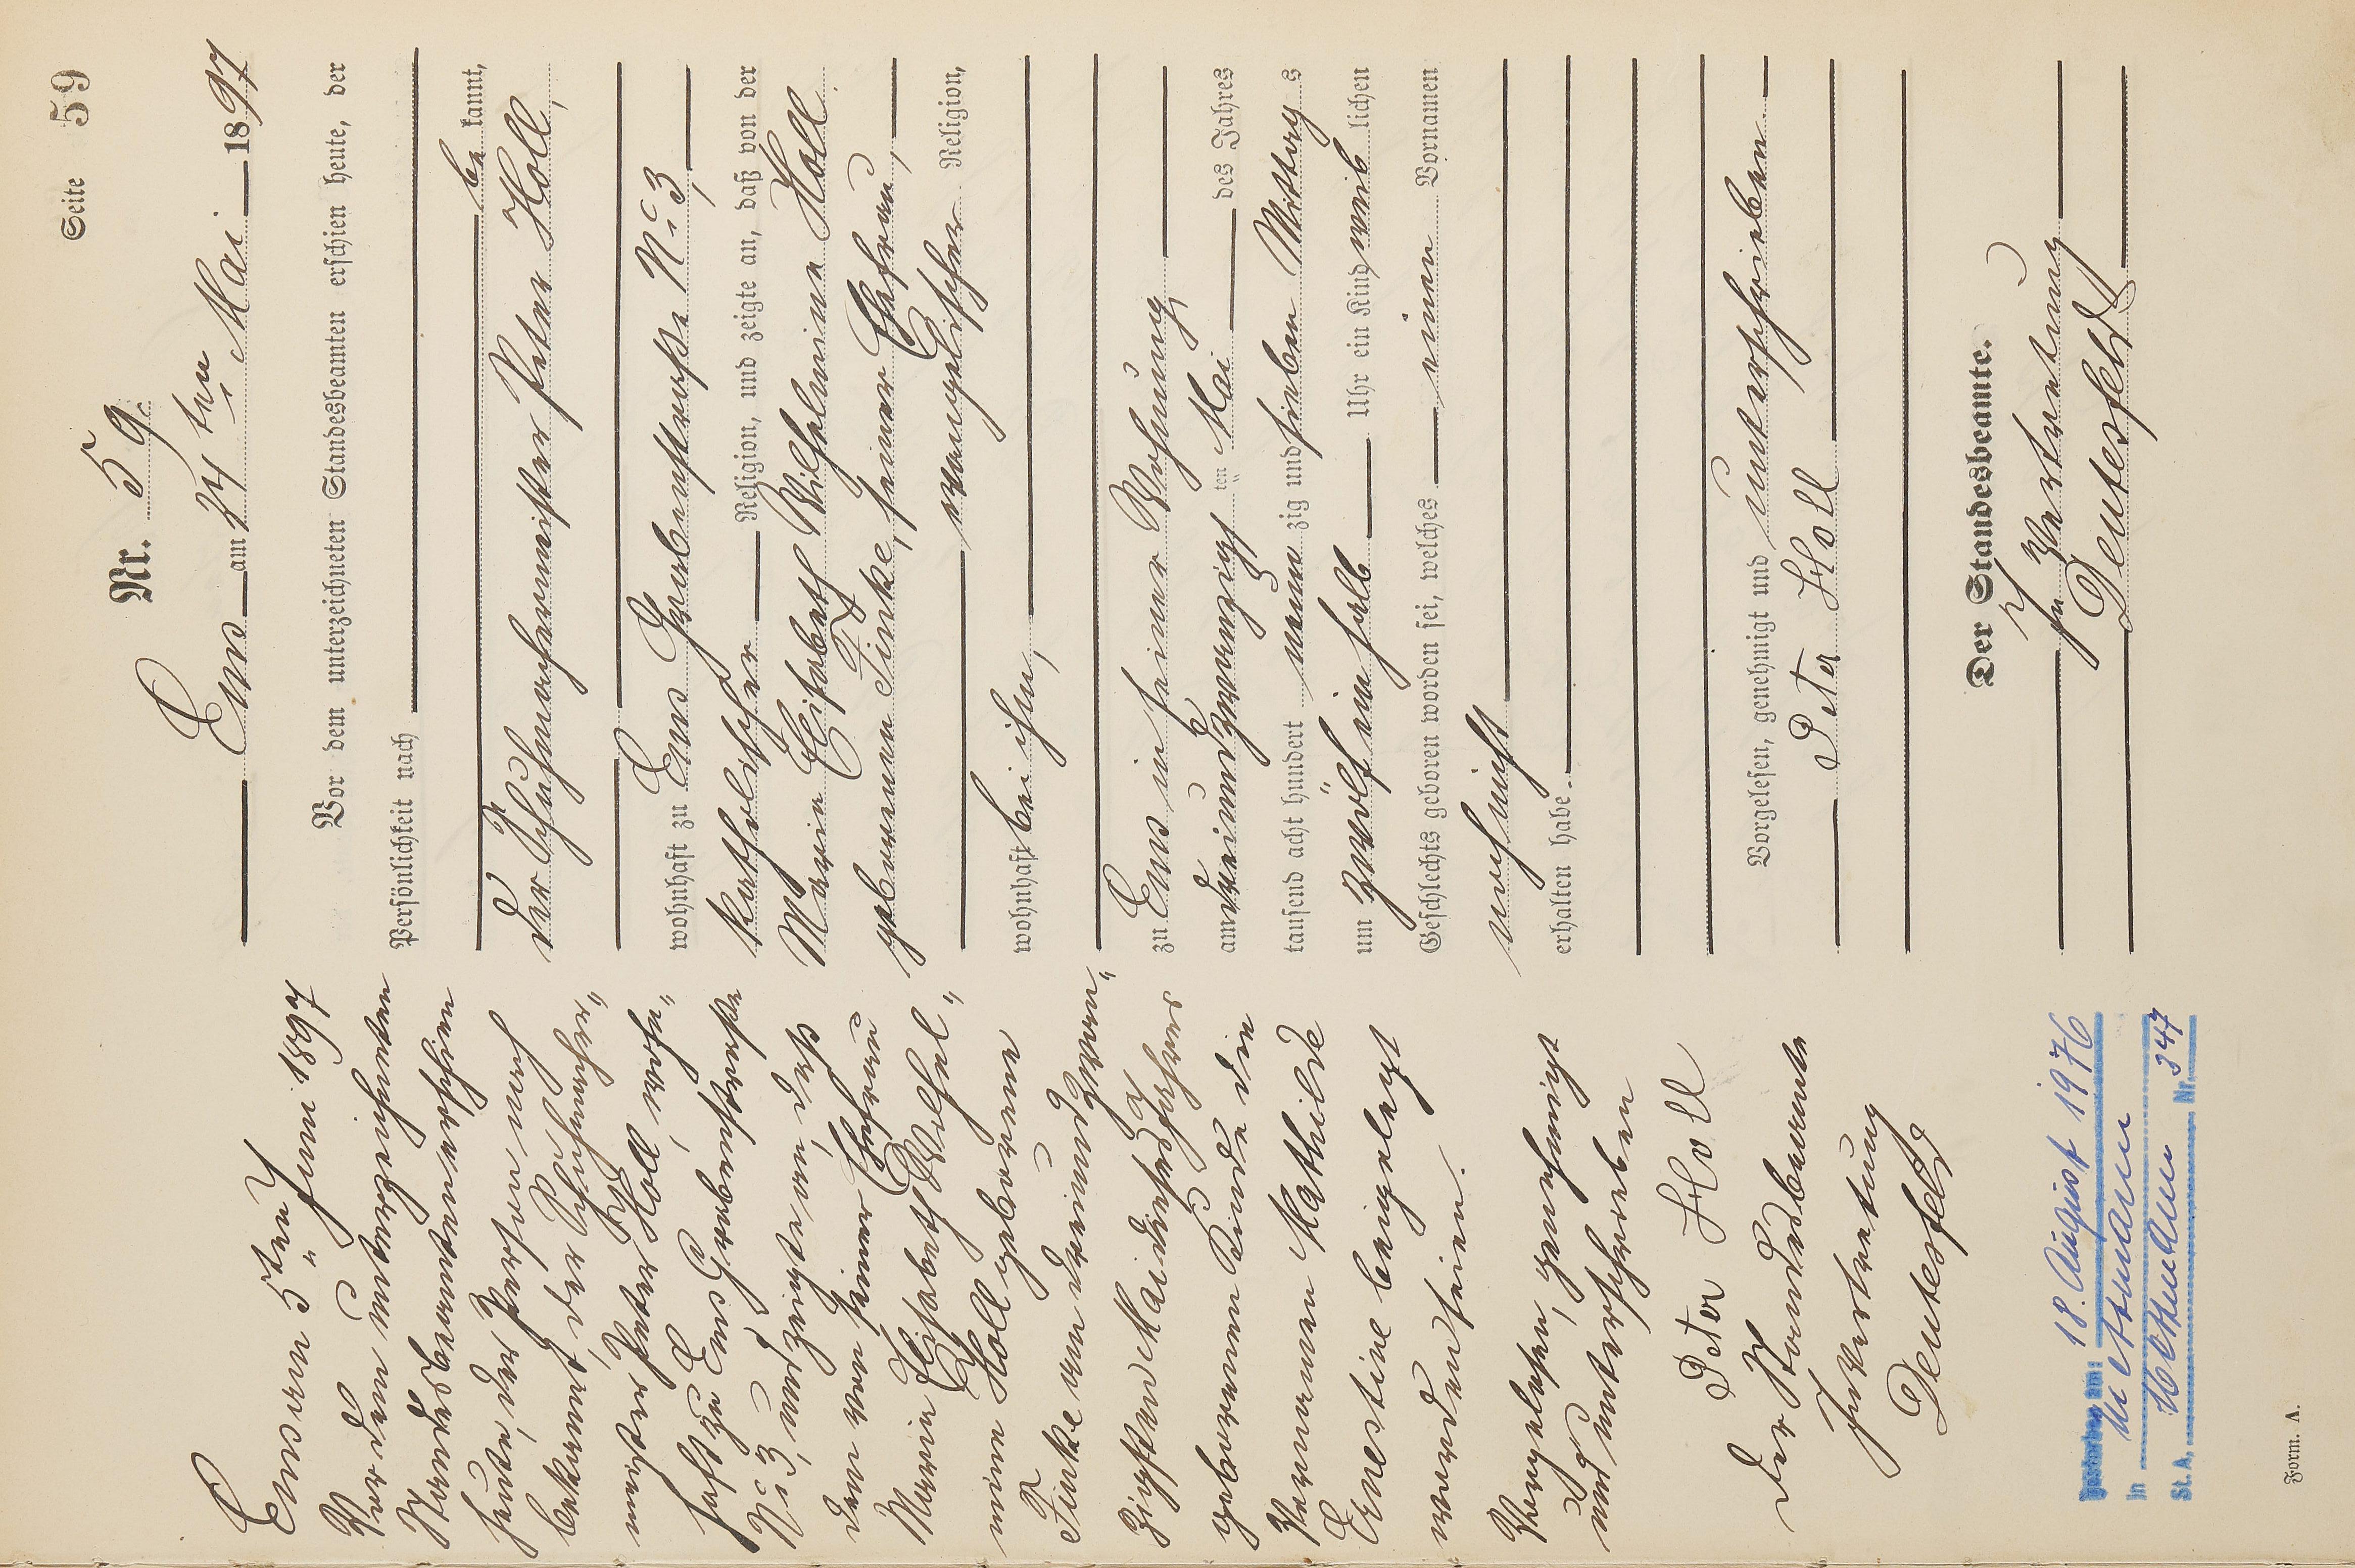 Seite 59
Nr. 59.
Ems am 24ten Mai 1897
Vor dem unterzeichneten Standesbeamten erschien heute, der
Persönlichkeit nach
be kannt,
der Schuhmachermeister Peter Holl,
wohnhaft zu Ems Grabenstraße No 3,
katholischer Religion, und zeigte an, daß von der
Maria Elisabeth Wilhelmine Holl
geborenen Finke, seiner Ehefrau,
evangelischer Religion,
wohnhaft bei ihm,
zu Ems in seiner Wohnung
am dreiundzwanzigsten Mai des Jahres
tausend acht hundert neun zig und sieben Mittags
um zwölf ein halb Uhr ein Kind weib lichen
Geschlechts geboren worden sei, welches einen Vornamen
noch nicht
erhalten habe.
Vorgelesen, genehmigt und unterschrieben
Peter Holl
Der Standesbeamte.
In Vertretung
Deutesfeld
Ems am 5ten Juni 1897
Vor dem unterzeichneten
Standesbeamten erschien
heute, der Person nach
bekannt, der Schuhmacher„
meister Peter Holl, wohn„
haft zu Ems Grabenstraße
No 3, und zeigte an, daß
dem von seiner Ehefrau
Maria Elisabeth Wilhel„
mine Holl geborenen
Finke am dreiundzwan„
zigsten Mai dieses Jahres
geborenen Kinde die
Vornamen Mathilde
Ernestine beigelegt
worden seien.
Vorgelesen, genehmigt
und unterschrieben
Peter Holl
Der Standesbeamte
In Vertretung
Deutesfeld
Gestorben am: 18. August 1976
in Mettmann
St. A. Mettmann Nr. 347
Form. A.